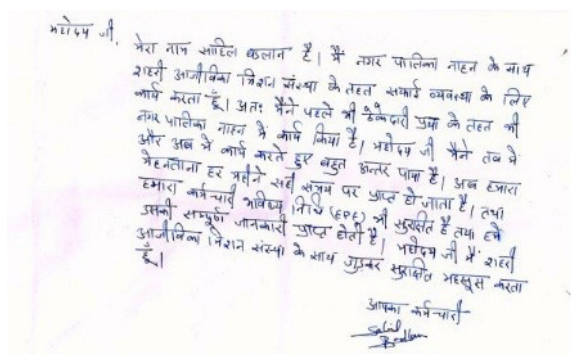 महोदय जी,
मेरा नाम साहिल बडलान है। मैं नगर पालिका नाहन के साथ
शहरी आजीविका मिशन संस्था के तहत सफाई व्यवस्था के लिए
कार्य करता हूँ। अतः मैंने पहले भी ठेकेदारी प्रथा के तहत भी
नगर पालिका नाहन में कार्य किया है। महोदय जी मैंने तब में
और अब में कार्य करते हुए बहुत अन्तर पाया है। अब हमारा
मेहनताना हर महीने सही समय पर प्राप्त हो जाता है। तथा
हमारा कर्मचारी भविष्य निधि (EPF) भी सुरक्षित है तथा हमें
उसकी सम्पूर्ण जानकारी प्राप्त होती है। महोदय जी मैं शहरी
आजीविका मिशन संस्था के साथ जुड़कर सुरक्षित महसूस करता
हूँ।
आपका कर्मचारी
Sahil